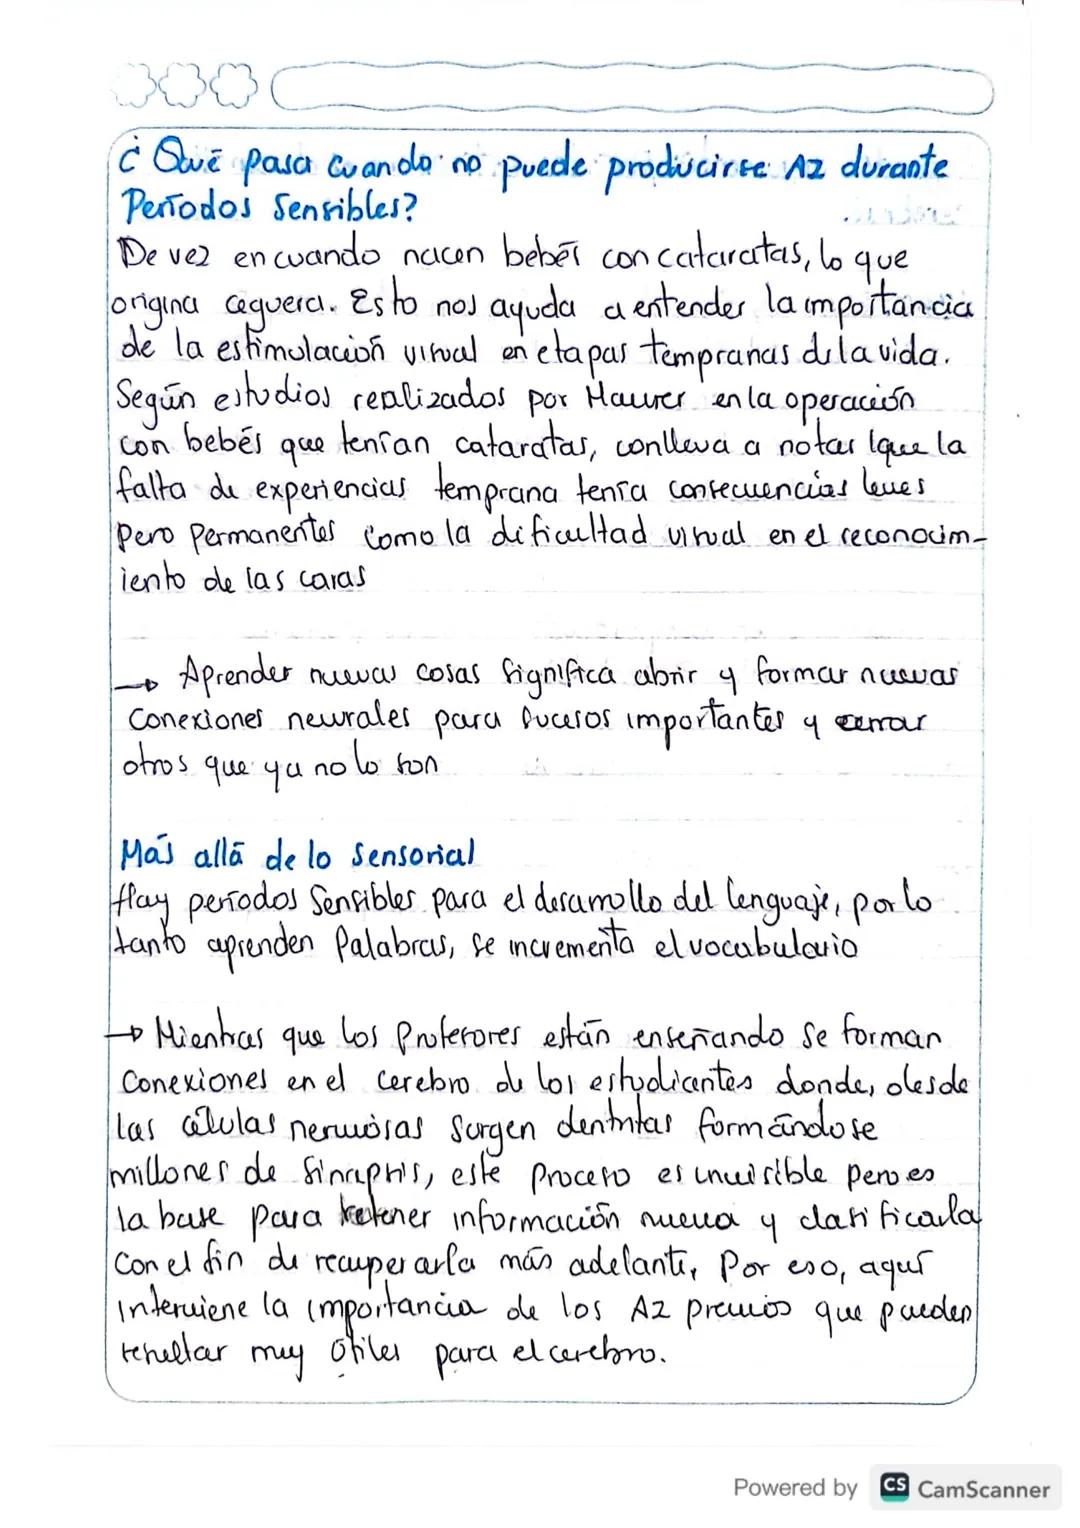 ¿Qué pasa cuando no puede producirse AZ durante
Períodos Sensibles?
De vez en cuando nacen bebés con cataratas, lo que
origina ceguera. Esto nos ayuda a entender la importancia
de la estimulación visual en etapas tempranas de la vida.
Según estudios realizados por Maurer en la operación
con bebés que tenían cataratas, conlleva a notar que la
falta de experiencias temprana tenía consecuencias leves
pero permanentes como la dificultad visual en el reconocim-
iento de las caras
→ Aprender nuevas cosas significa abrir y formar nuevas
conexiones neurales para sucesos importantes y cerrar
otros que ya no lo son
Más allá de lo sensorial
Hay períodos sensibles para el desarrollo del lenguaje, por lo
tanto aprenden palabras, se incrementa el vocabulario
→ Mientras que los profesores están enseñando se forman
conexiones en el cerebro de los estudiantes donde, desde
las células nerviosas surgen dentritas formándose
millones de sinapsis, este proceso es invisible pero es
la base para retener información nueva y clasificarla
con el fin de recuperarla más adelante, Por eso, aquí
interviene la importancia de los AZ previos que pueden
resultar muy útiles para el cerebro.
Powered by CS CamScanner